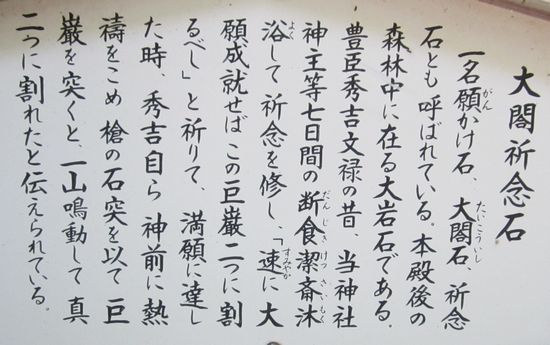 大閣祈念石
一名願かけ石、大閣石、祈念
石とも呼ばれている。本殿後の
森林中に在る大岩石である.
豊臣秀吉文禄の昔、当神社
神主等七日間の断食潔斎沐
浴して祈念を修し、「速に大
願成就せばこの巨巌二つに割
るべし」と祈りて、満願に達し
た時、秀吉自ら神前に熱
禱をこめ槍の石突を以て巨
巌を突くと、一山鳴動して真
二つに割れたと伝えられている。